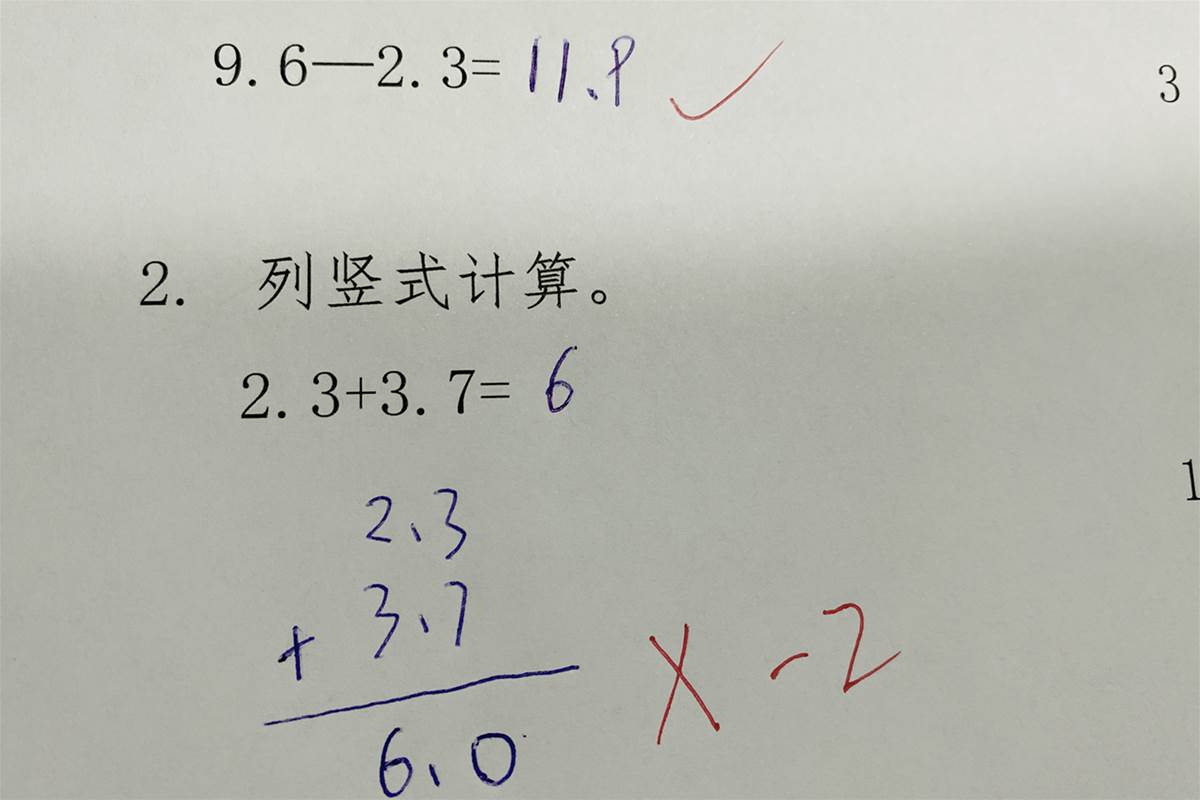 9.6—2.3= 11.9 ✓
3
2. 列竖式计算。
2.3+3.7= 6
1
2.3
+ 3.7
6.0
× -2